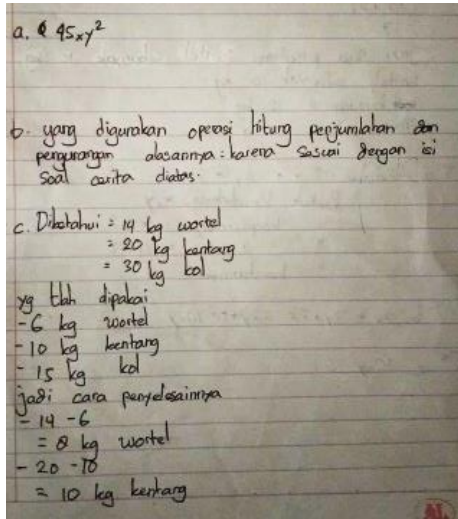 a. 45xy²
b. yang digunakan operasi hitung penjumlahan dan
pengurangan alasannya : karena sesuai dengan isi
soal cerita diatas.
c. Diketahui = 14 kg wortel
= 20 kg kentang
= 30 kg kol
yg tlah dipakai
- 6 kg wortel
- 10 kg kentang
- 15 kg kol
jadi cara penyelesainnya
- 14 - 6
= 8 kg wortel
- 20 - 10
= 10 kg kentang